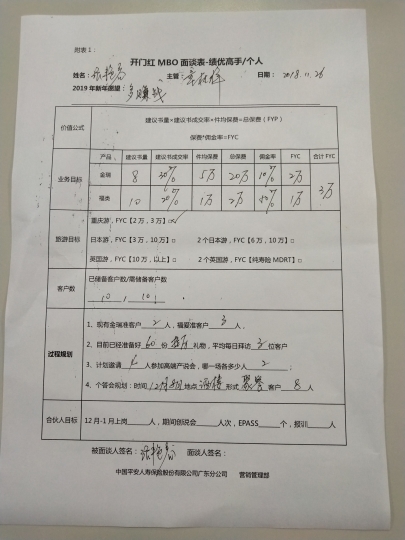 附表1:
开门红MBO面谈表-绩优高手/个人
姓名: 主管: 日期: 2018.11.26
2019年新年愿望: 多赚钱
价值公式 建议书量*建议书成交率*件均保费=总保费(FYP)
保费*佣金率=FYC
业务目标 产品 建议书量 建议书成交率 件均保费 总保费 佣金率 FYC 合计FYC
金瑞 8 50% 5万 20万 10% 2万 3万
福类 10 20% 1万 2万 1万
旅游目标 重庆游,FYC【2万,3万】□√
日本游,FYC【3万,10万】□ 2个日本游,FYC【6万,10万】□
英国游,FYC【10万,以上】□ 2个英国游,FYC【纯寿险MDRT】□
客户数 已储备客户数/需储备客户数
10 / 10
过程规划 1、现有金瑞准客户 2 人,福爱准客户 3 人,
2、目前已经准备好 60 份 礼物,平均每日拜访 3 位客户
3、计划邀请 人参加高端产说会,哪一场各多少人 2 ;
4、个答会规划:时间 12月 地点 形式 聚餐 客户 8 人
合伙人目标 12月-1月上岗 人,期间创说会 人次,EPASS 个,报训 人
被面谈人签名: 面谈人签名:
中国平安人寿保险股份有限公司广东分公司 营销管理部